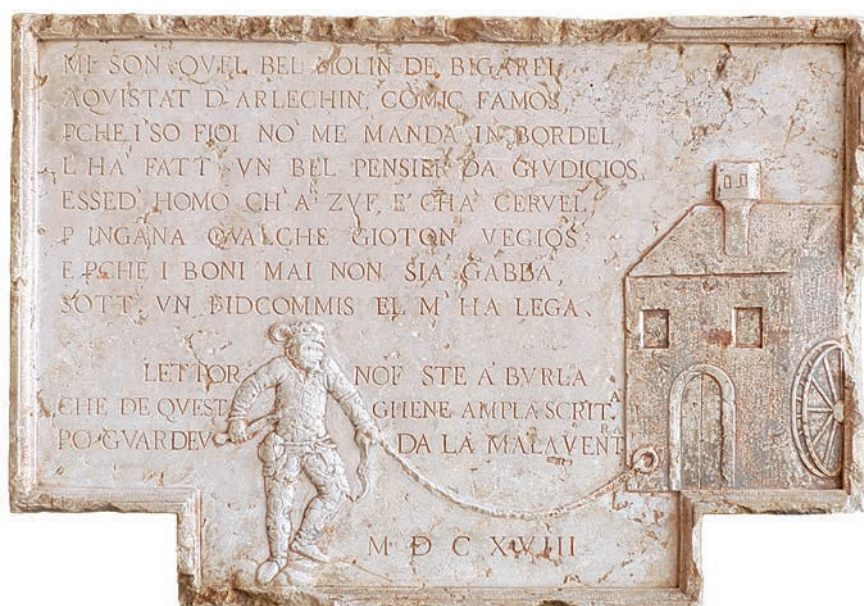 MI SON QVEL BEL MOLIN DE BIGAREL
AQVISTAT D'ARLECHIN, COMIC FAMOS,
PCHE I'SO FIOI NO' ME MANDA IN BORDEL,
L'HA' FATT' VN BEL PENSIER DA GIVDICIOS,
ESSED' HOMO CH'A' ZVF, E' CHA' CERVEL
P INGANA QVALCHE GIOTON VEGIOS
E PCHE I BONI MAI NON SIA GABBA,
SOTT' VN FIDCOMMIS EL M'HA LEGA.
LETTOR NOF STE A BVRLA
CHE DE QVEST GHENE AMPLA SCRITA
PO GVARDEV DA LA MALAVENTR
M D C XVIII